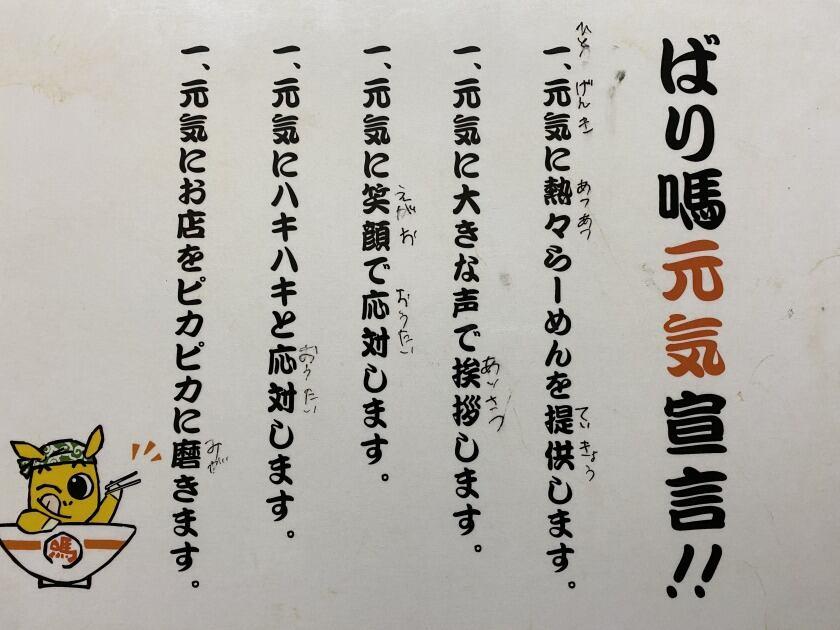 ばり嗎元気宣言!!
一、元気に熱々らーめんを提供します。
ひと げんき あつあつ ていきょう
一、元気に大きな声で挨拶します。
あいさつ
一、元気に笑顔で応対します。
えがお おうたい
一、元気にハキハキと応対します。
おうたい
一、元気にお店をピカピカに磨きます。
嗎